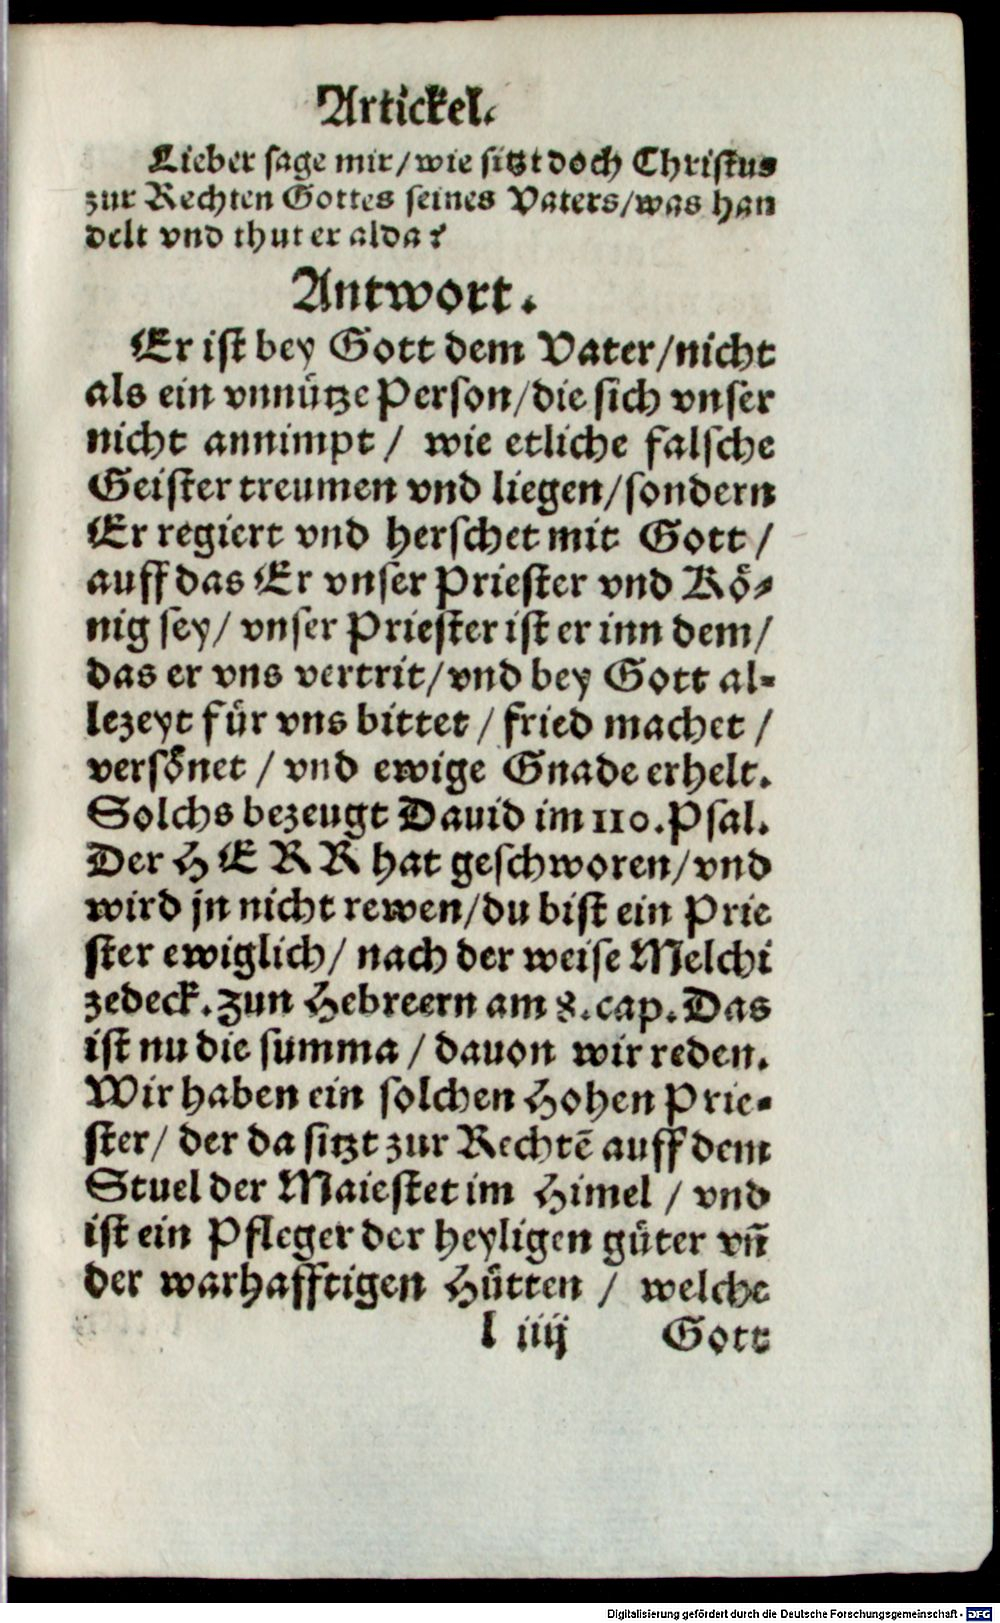 Artickel.
Lieber sage mir/wie sitzt doch Christus
zur Rechten Gottes seines Vaters/was han
delt vnd thut er alda?
Antwort.
Er ist bey Gott dem Vater/nicht
als ein vnnütze Person/die sich vnser
nicht annimpt/ wie etliche falsche
Geister treumen vnd liegen/sondern
Er regiert vnd herschet mit Gott/
auff das Er vnser Priester vnd Kö-
nig sey/ vnser Priester ist er inn dem/
das er vns vertrit/vnd bey Gott al-
lezeyt für vns bittet/ fried machet/
versönet/ vnd ewige Gnade erhelt.
Solchs bezeugt Dauid im 110. Psal.
Der HERR hat geschworen/vnd
wird jn nicht rewen/du bist ein Prie
ster ewiglich/ nach der weise Melchi
zedeck. Zun Hebreern am 8. cap. Das
ist nu die summa/ dauon wir reden.
Wir haben ein solchen Hohen Prie-
ster/ der da sitzt zur Rechtē auff dem
Stuel der Maiestet im Himel/ vnd
ist ein Pfleger der heyligen güter vñ
der warhafftigen Hütten/ welche
l iiij Gott
Digitalisierung gefördert durch die Deutsche Forschungsgemeinschaft - DFG